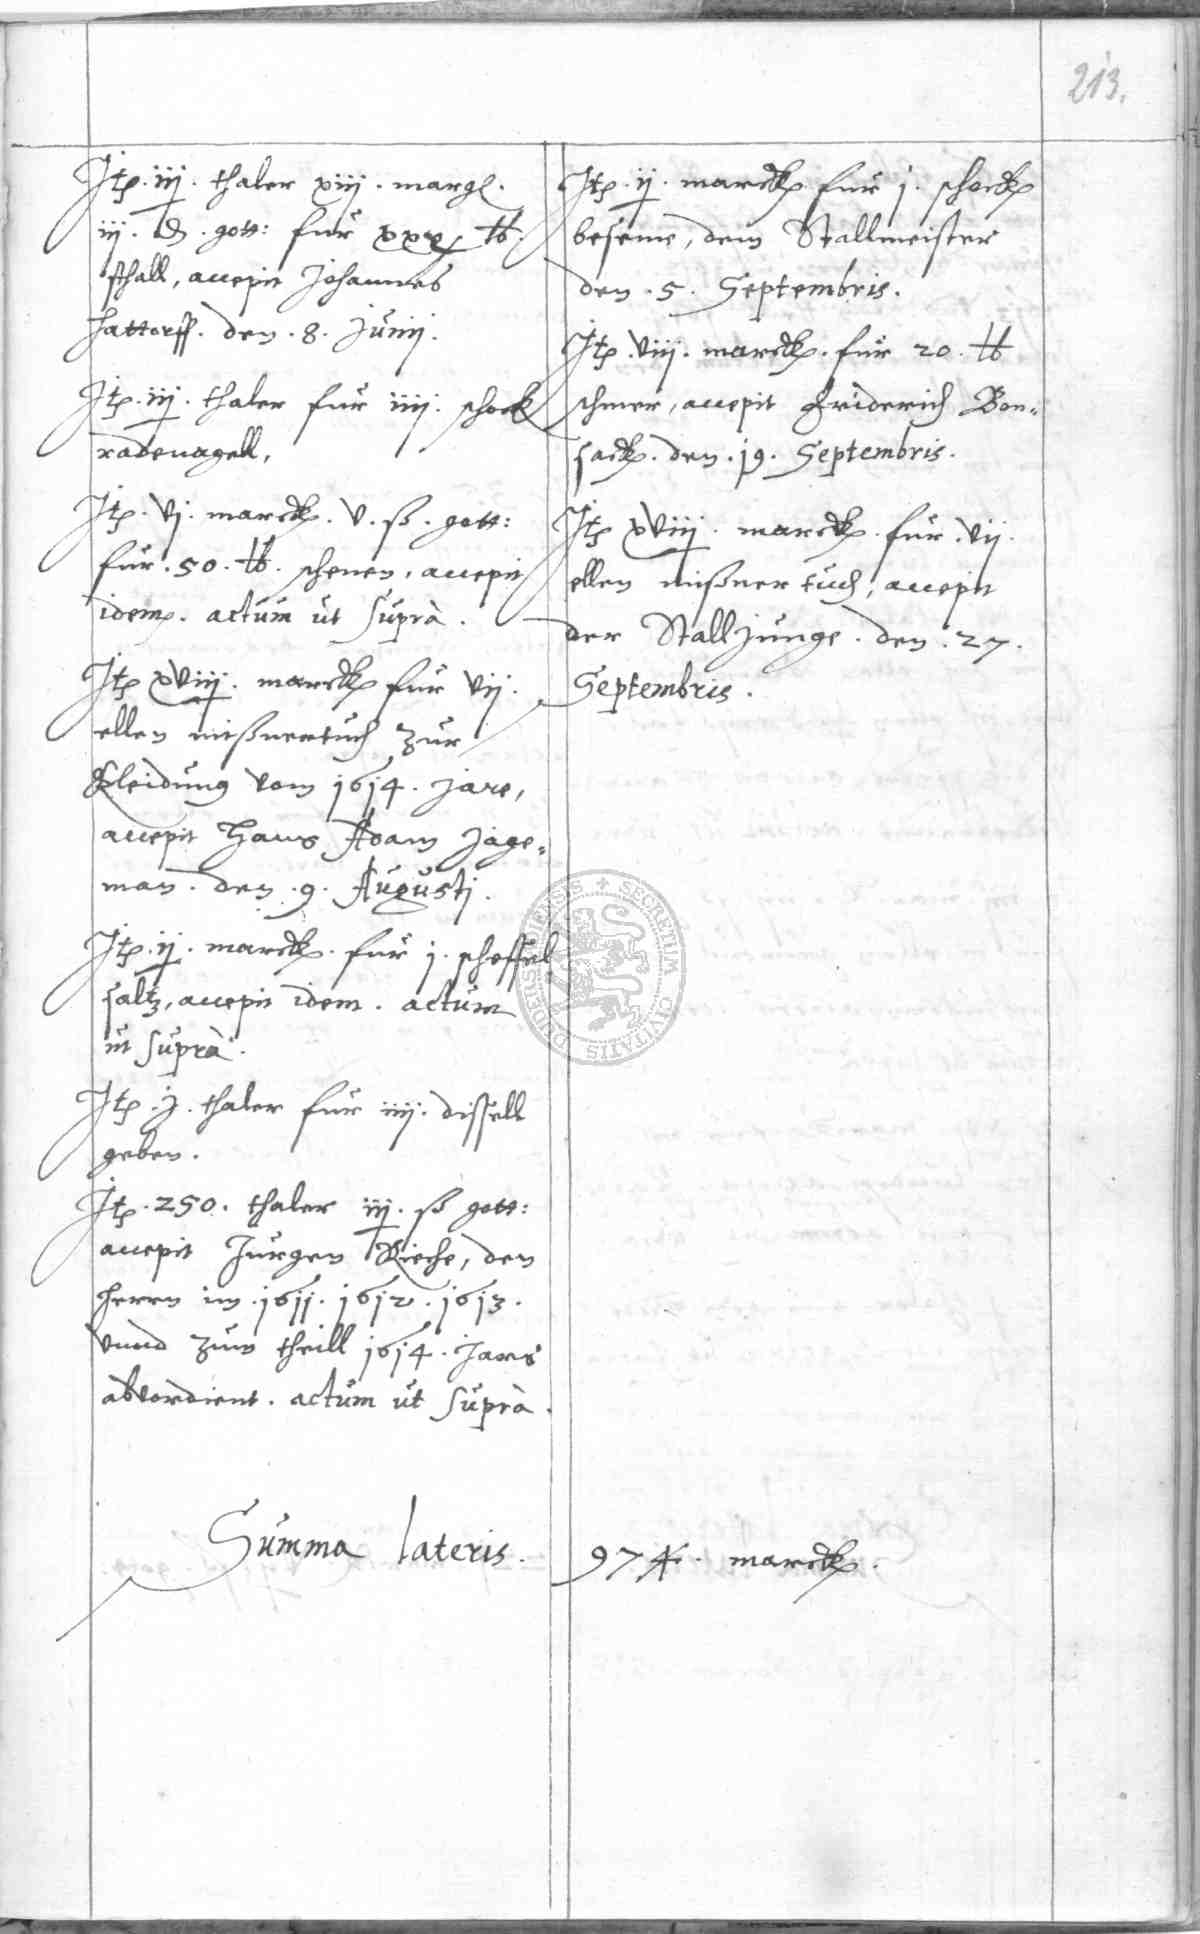 213.
Itp. iij. thaler xiij. margl.
iij. d. gott: fur xxv lb.
sthall, accepit Johannes
Hattorff. den. 8. Junij.
Itp. iij. thaler fur iiij. schock
radenagell,
Itp. vj. marck. v. ß. gott:
fur. 50. lb. schenen, accepit
idem. actum ut suprà.
Itp xviij. marck fur vij.
ellen mißnertuch zur
Kleidung vom 1614. jare,
accepit Hans Adam Jage-
man. den. 9. Augusti.
Itp. ij. marck. fur j. scheffel
saltz, accepit idem. actum
ut suprà.
Itp. j. thaler fur iiij. disfell
geben.
Itp. 250. thaler iij. ß gott:
accepit Jurgen Kieche, den
herrn im. 1611. 1612. 1613.
vnnd zum theill 1614. jars
abverdient. actum ut suprà.
Itp. ij. marck fur j. schock
beseme, dem Stallmeister
den. 5. Septembris.
Itp. viij. marck. fur 20. lb
schmer, accepit Friderich Bon-
sack. den. 19. Septembris.
Itp xviij. marck fur. vij.
ellen mißner tuch, accepit
der Stalljunge. den. 27.
Septembris.
Summa lateris. 974. marck.
SECRETUM CIVITATIS DUDERSTADIENSIS